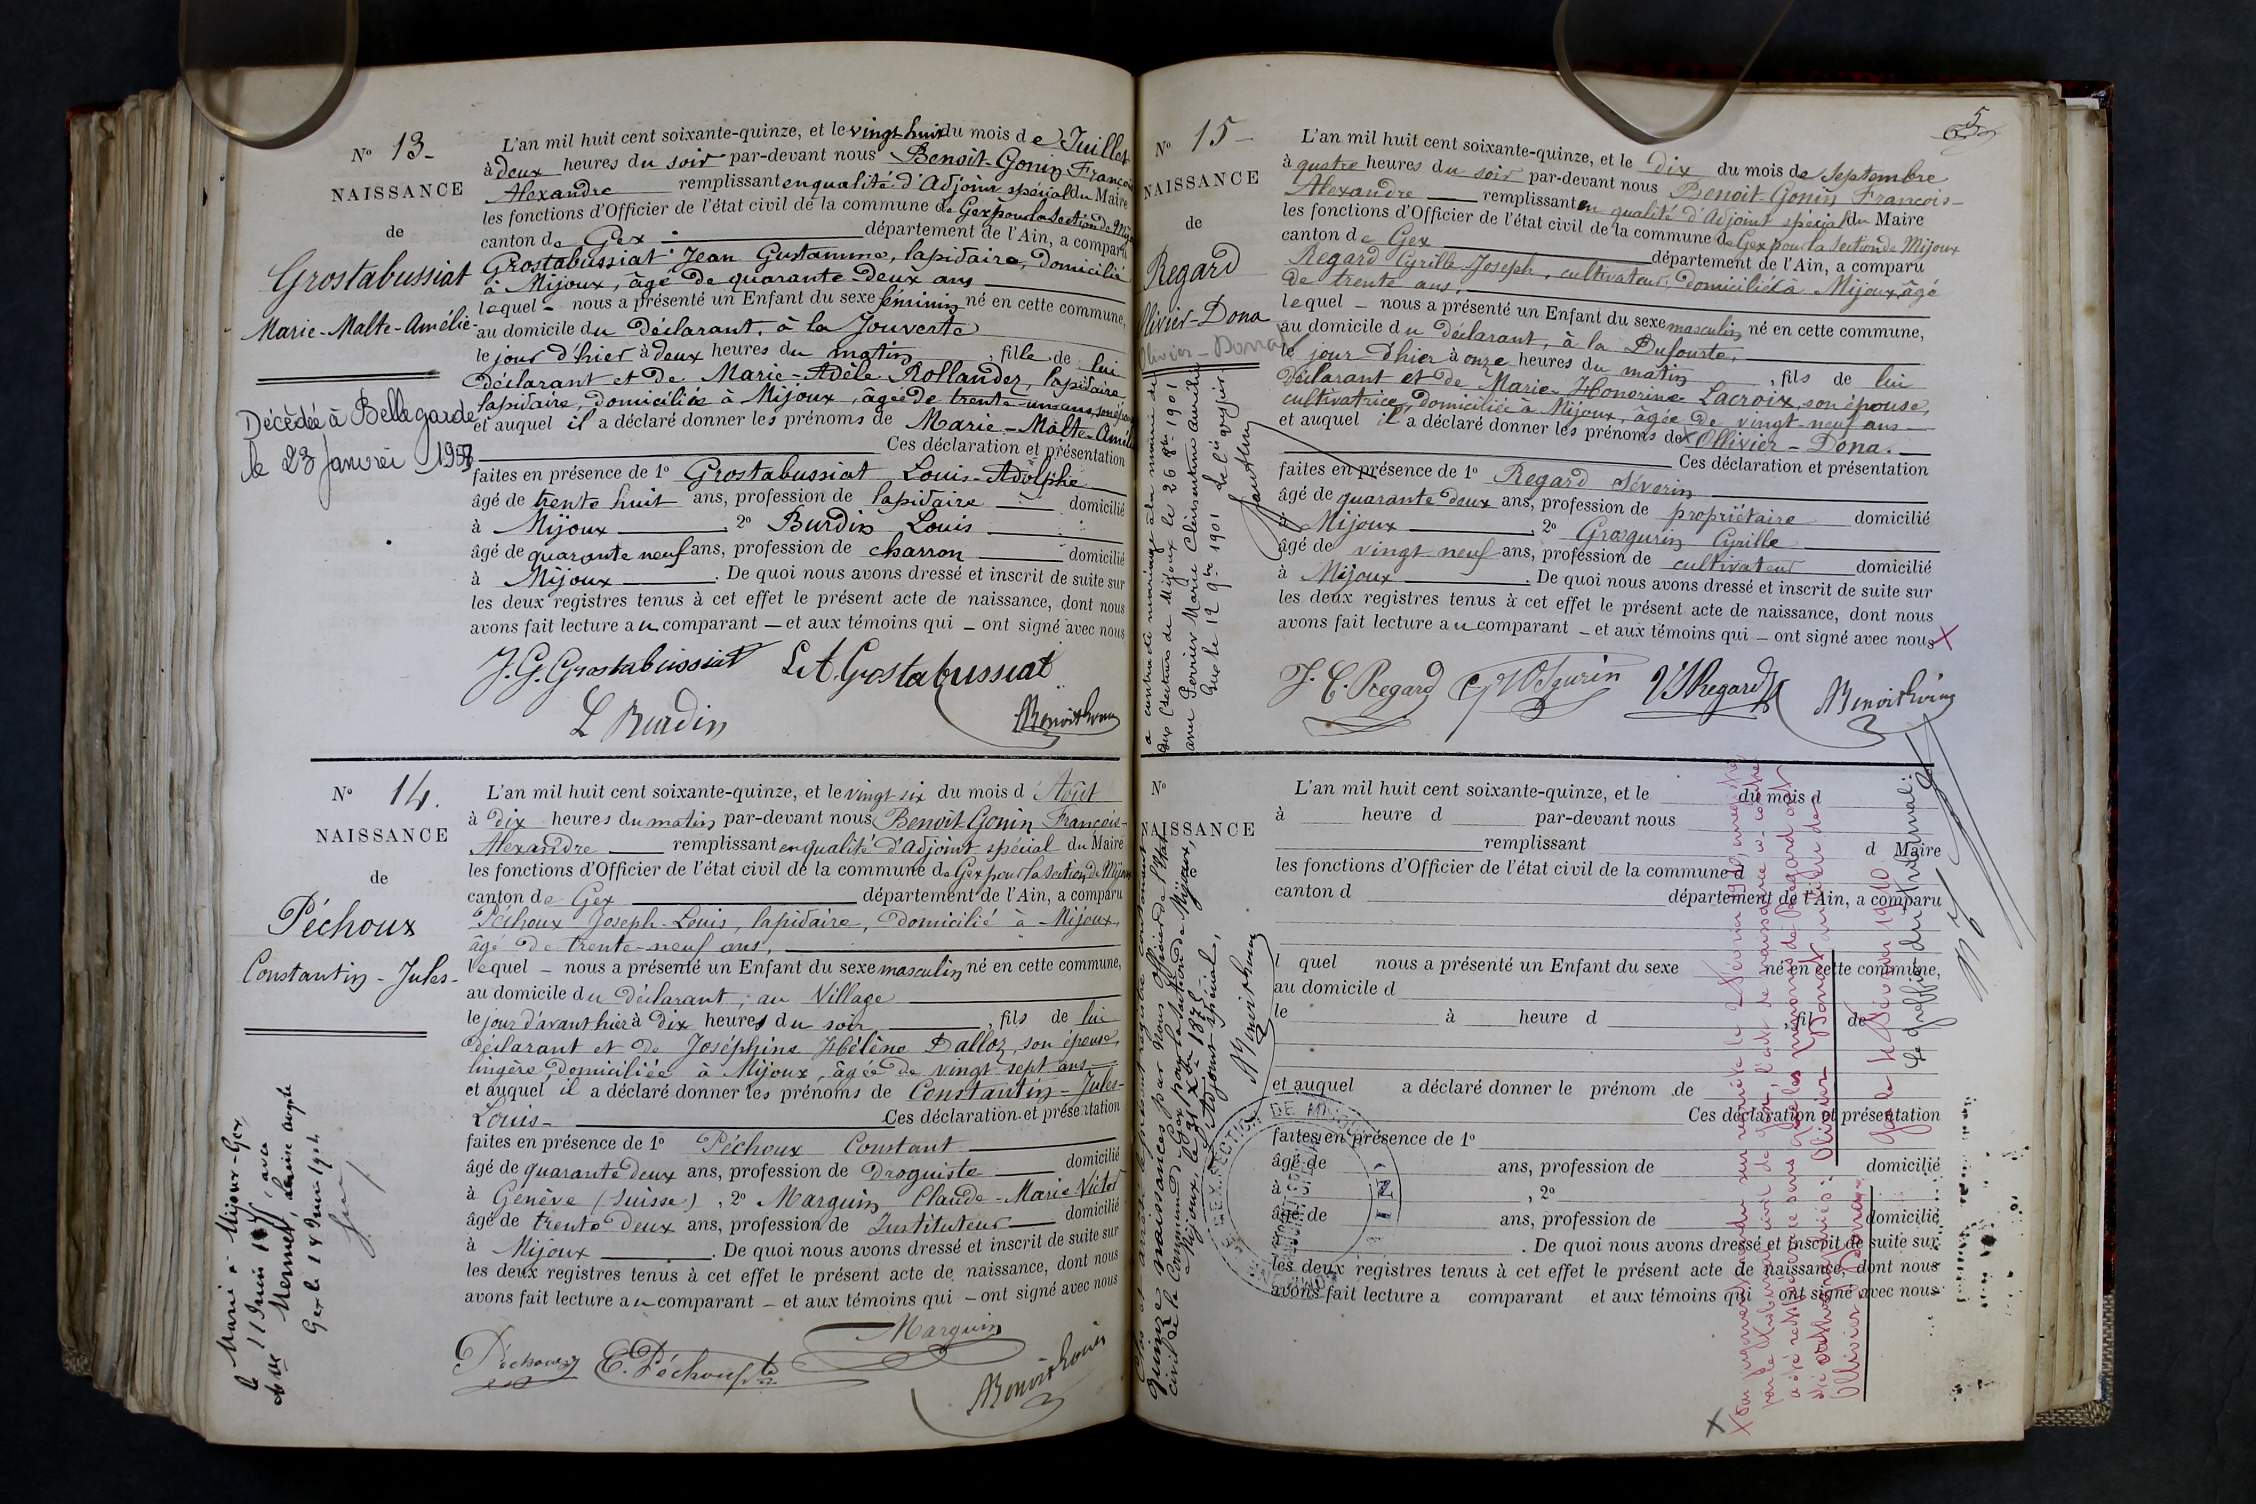 N° 13-
NAISSANCE
de
Grostabussiat
Marie-Malte-Amélie-
Décédée à Bellegarde
le 23 Janvier
L'an mil huit cent soixante-quinze, et le vingt-huit du mois de Juillet
à deux heures du soir par-devant nous Benoit-Gonin François
Alexandre remplissant en qualité d'Adjoint spécial du Maire
les fonctions d'Officier de l'état civil de la commune de Gex pour la Section de Mijoux
canton de Gex département de l'Ain, a comparu
Grostabussiat Jean Gustamme, lapidaire, domicilié
à Mijoux, âgé de quarante deux ans
lequel - nous a présenté un Enfant du sexe féminin né en cette commune,
au domicile du déclarant, à la Jouverte
le jour d'hier à deux heures du matin, fille de lui
déclarant et de Marie-Adèle Rollandez, lapidaire
lapidaire, domiciliée à Mijoux, âgée de trente-un ans, son épouse
et auquel il a déclaré donner les prénoms de Marie-Malte-Amélie
Ces déclaration et présentation
faites en présence de 1° Grostabussiat Louis-Adolphe
âgé de trente huit ans, profession de lapidaire domicilié
à Mijoux, 2° Burdin Louis
âgé de quarante neuf ans, profession de charron domicilié
à Mijoux. De quoi nous avons dressé et inscrit de suite sur
les deux registres tenus à cet effet le présent acte de naissance, dont nous
avons fait lecture au comparant - et aux témoins qui - ont signé avec nous
J.G. Grostabussiat L.A. Grostabussiat
L Burdin
ABenoitGonin
N° 14.
NAISSANCE
de
Péchoux
Constantin-Jules-
Marié à Mijoux-Gex
le 11 Juin avec
Gex le 18 Juin 1904
L'an mil huit cent soixante-quinze, et le vingt-six du mois d'Août
à dix heures du matin par-devant nous Benoit-Gonin François-
Alexandre remplissant en qualité d'Adjoint spécial du Maire
les fonctions d'Officier de l'état civil de la commune de Gex pour la Section de Mijoux
canton de Gex département de l'Ain, a comparu
Péchoux Joseph-Louis, lapidaire, domicilié à Mijoux,
âgé de trente-neuf ans,
lequel - nous a présenté un Enfant du sexe masculin né en cette commune,
au domicile du déclarant, au Village
le jour d'avant hier à dix heures du soir, fils de lui
déclarant et de Joséphine Hélène Dalloz, son épouse,
lingère, domiciliée à Mijoux, âgée de vingt sept ans
et auquel il a déclaré donner les prénoms de Constantin-Jules-
Louis- Ces déclaration et présentation
faites en présence de 1° Péchoux Constant
âgé de quarante deux ans, profession de Droguiste domicilié
à Genève (Suisse), 2° Marguin Claude-Marie-Victor
âgé de trente deux ans, profession de Instituteur domicilié
à Mijoux. De quoi nous avons dressé et inscrit de suite sur
les deux registres tenus à cet effet le présent acte de naissance, dont nous
avons fait lecture au comparant - et aux témoins qui - ont signé avec nous
Marguin
Péchoux C. Péchoux
ABenoitGonin
5
N° 15-
NAISSANCE
de
Regard
Ollivier-Dona
Olivier-Donat
a contracté mariage à la mairie de
Gex le 12 9bre 1901 Le Greffier
L'an mil huit cent soixante-quinze, et le dix du mois de Septembre
à quatre heures du soir par-devant nous Benoit-Gonin François-
Alexandre remplissant en qualité d'Adjoint spécial du Maire
les fonctions d'Officier de l'état civil de la commune de Gex pour la Section de Mijoux
canton de Gex département de l'Ain, a comparu
Regard Cyrille Joseph, cultivateur, domicilié à Mijoux, âgé
de trente ans,
lequel - nous a présenté un Enfant du sexe masculin né en cette commune,
au domicile du déclarant, à la Dufourte,
le jour d'hier à onze heures du matin, fils de lui
déclarant et de Marie-Honorine Lacroix, son épouse,
cultivatrice, domiciliée à Mijoux, âgée de vingt-neuf ans
et auquel il a déclaré donner les prénoms de Ollivier-Dona.
Ces déclaration et présentation
faites en présence de 1° Regard Séverin
âgé de quarante deux ans, profession de propriétaire domicilié
à Mijoux, 2° Grosgurin Cyrille
âgé de vingt neuf ans, profession de cultivateur domicilié
à Mijoux. De quoi nous avons dressé et inscrit de suite sur
les deux registres tenus à cet effet le présent acte de naissance, dont nous
avons fait lecture au comparant - et aux témoins qui - ont signé avec nous X
J. C. Regard VSRegard ABenoitGonin
Clos et arrêté le présent registre contenant
quinze naissances par Nous Officier de l'Etat
civil de la Commune de Gex pour la Section de Mijoux,
à Mijoux, le 31 Xbre 1875.
L'Adjoint spécial,
ABenoitGonin
N°
NAISSANCE
L'an mil huit cent soixante-quinze, et le du mois d
à heure d par-devant nous
remplissant d Maire
les fonctions d'Officier de l'état civil de la commune d
canton d département de l'Ain, a comparu
l quel nous a présenté un Enfant du sexe né en cette commune,
au domicile d
le à heure d, fil de
et auquel a déclaré donner le prénom de
Ces déclaration et présentation
faites en présence de 1°
âgé de ans, profession de domicilié
à, 2°
âgé de ans, profession de domicilié
. De quoi nous avons dressé et inscrit de suite sur
les deux registres tenus à cet effet le présent acte de naissance, dont nous
avons fait lecture a comparant et aux témoins qui ont signé avec nous
Le Greffier du tribunal